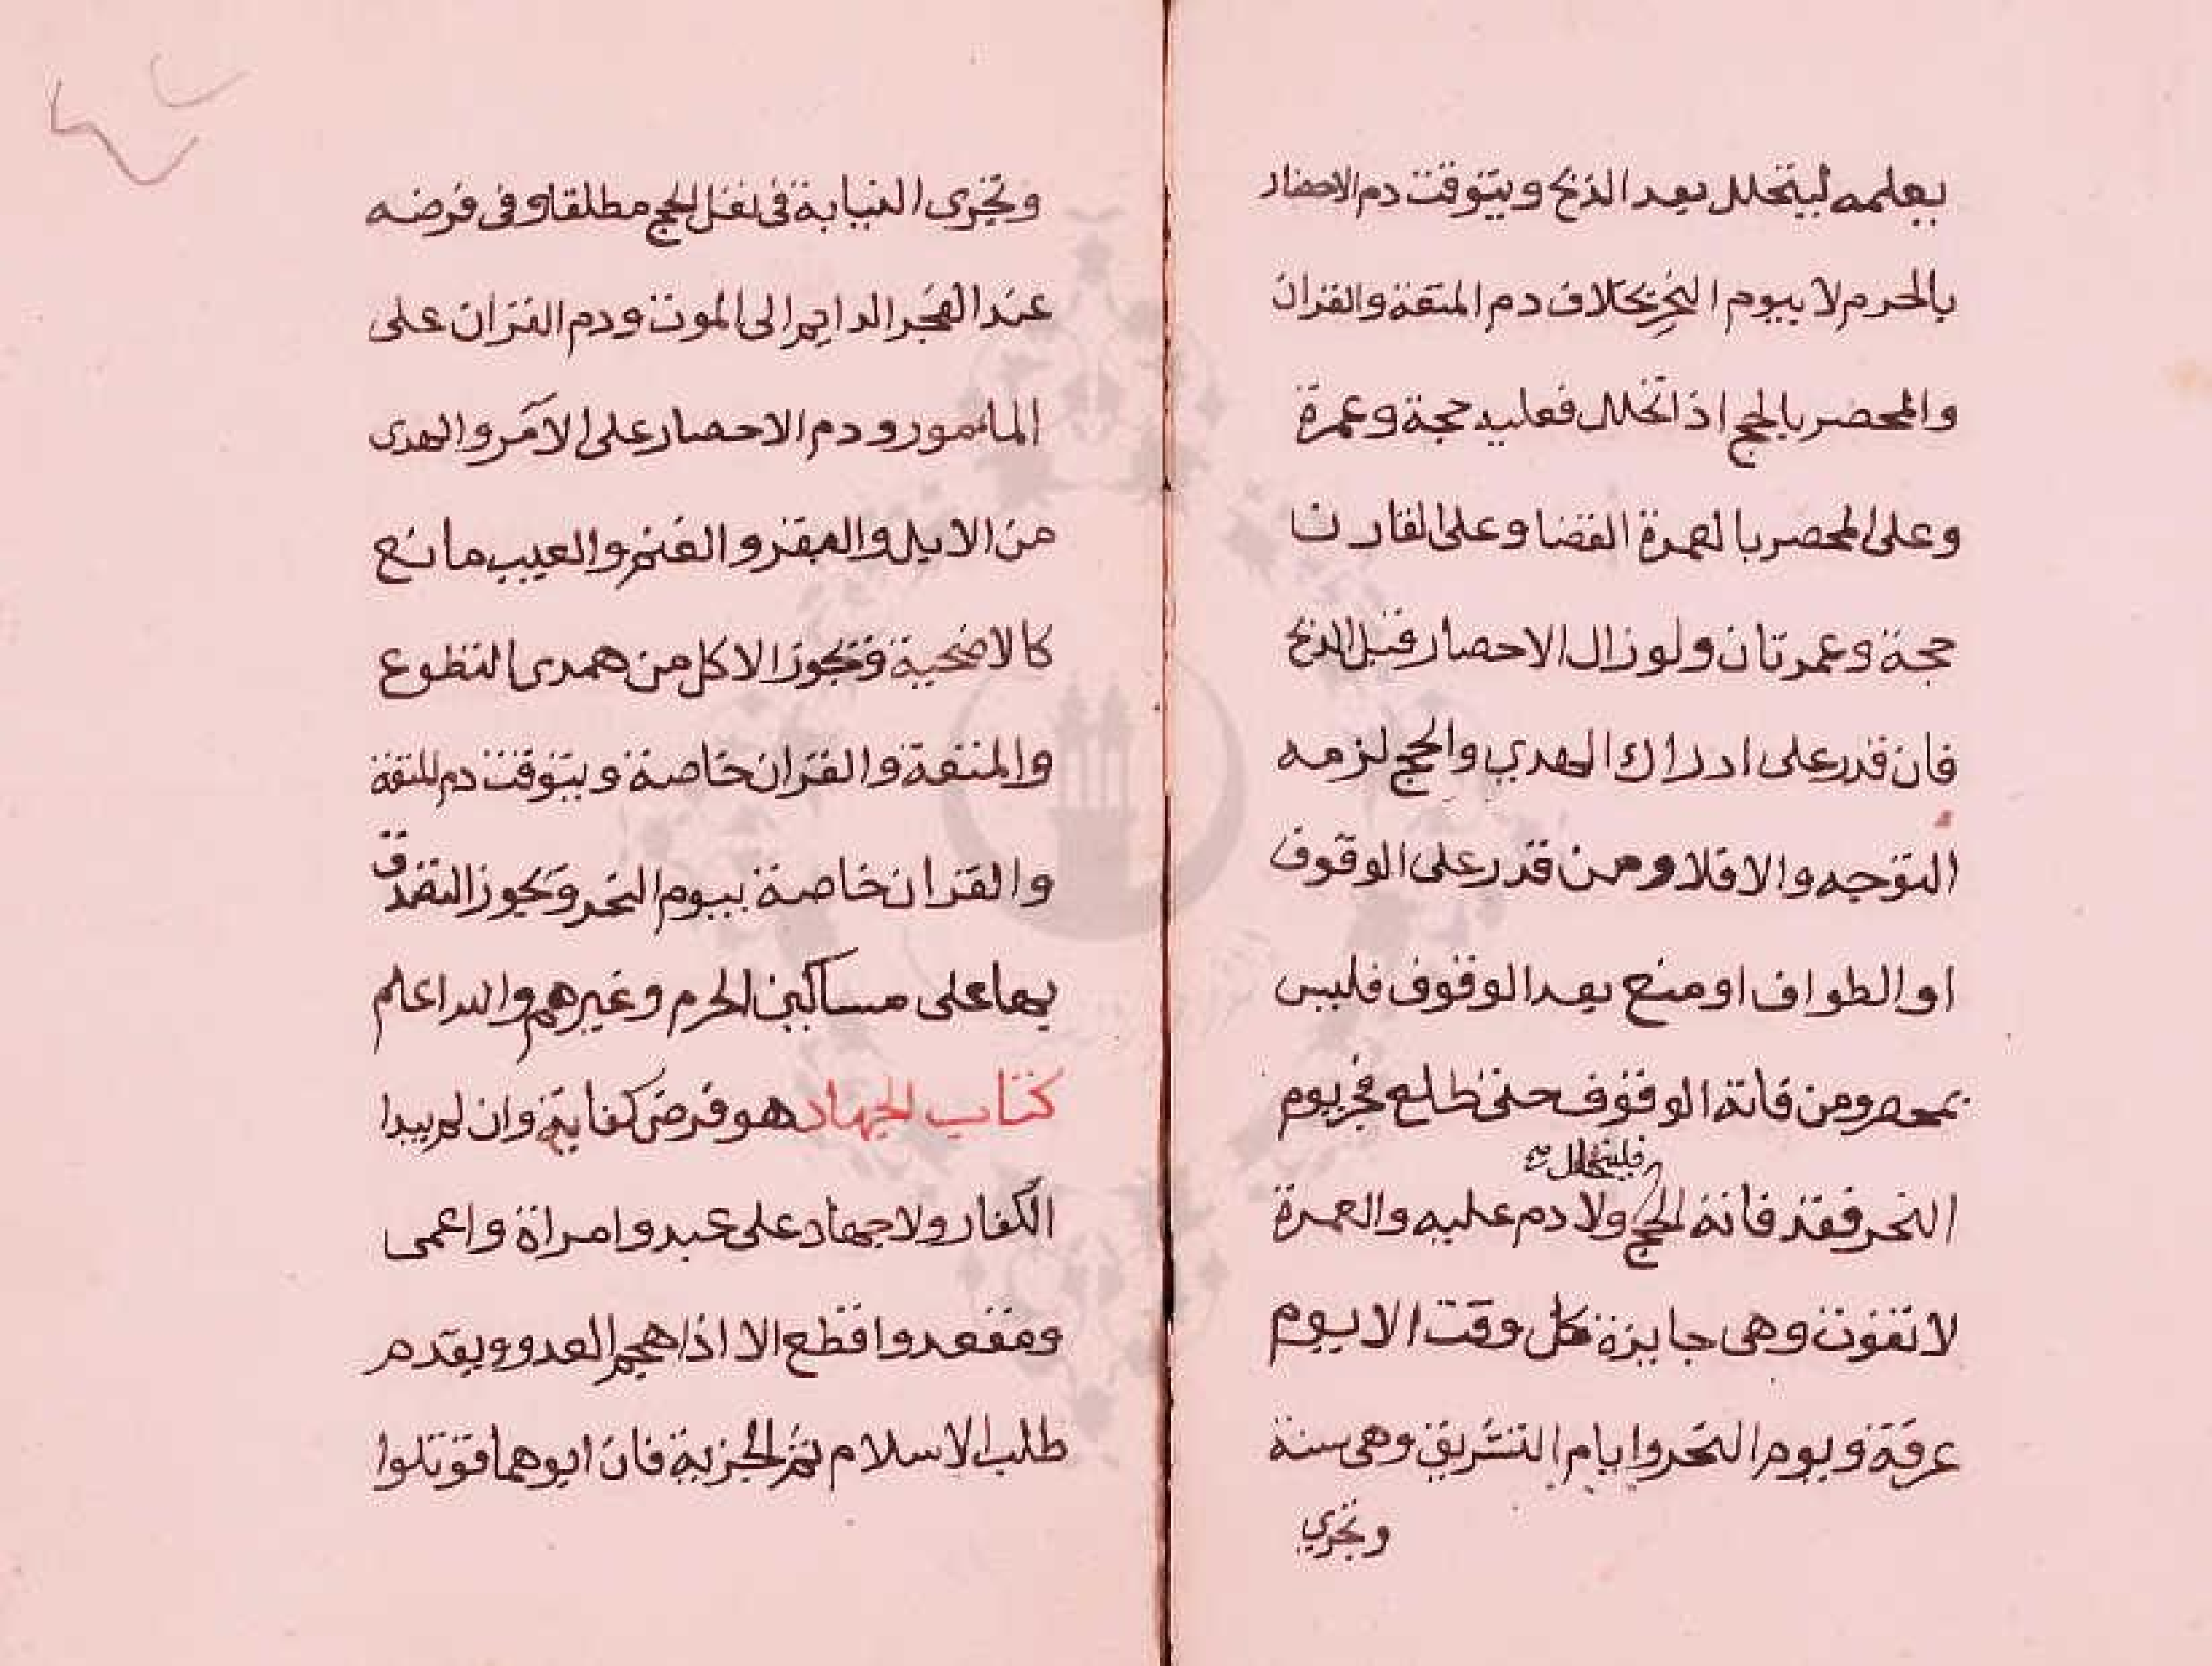 يعلمه ليتحلل بعد الذبح ويتوقت دم الاحصار
بالحرم لا بيوم النحر بخلاف دم المتعة والقران
والمحصر بالحج اذا تحلل فعليه حجة وعمرة
وعلى المحصر بالعمرة القضا وعلى القارن
حجة وعمرتان ولو زال الاحصار قبل الذبح
فان قدر على ادراك الهدي والحج لزمه
التوجه والا فلا ومن قدر على الوقوف
او الطواف او منع بعد الوقوف فليس
بمحصر ومن فاتة الوقوف حتى طلع فجر يوم
فليتحلل
النحر فقد فاتة الحج ولا دم عليه والعمرة
لا تفوت وهى جايزة كل وقت الا يوم
عرفة ويوم النحر وايام التشريق وهى سنة
وتجزي
وتجزى النيابة فى نفل الحج مطلقا وفى فرضه
عند العجز الدايم الى الموت ودم القران على
المامور ودم الاحصار على الآمر والهدى
من الابل والبقر والغنم والعيب مانع
كالاضحية ويجوز الاكل من هدى التطوع
والمتعة والقران خاصة ويتوقت دم المتعة
والقران خاصة بيوم النحر ويجوز التصدق
بها على مساكين الحرم وغيرهم والله اعلم
كتاب الجهاد هو فرض كفاية وان لم يبدا
الكفار ولا جهاد على عبد وامراة واعمى
ومقعد واقطع الا اذا هجم العدو ويقدم
طلب الاسلام ثم الجزية فان ابوهما قوتلوا